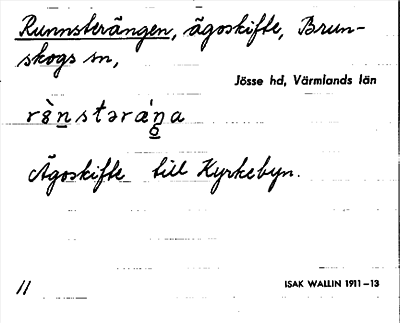 Runnsterängen, ägoskifte, Brun-
skogs sn,
Jösse hd, Värmlands län
Ägoskifte till Kyrkebyn.
11
ISAK WALLIN 1911–13